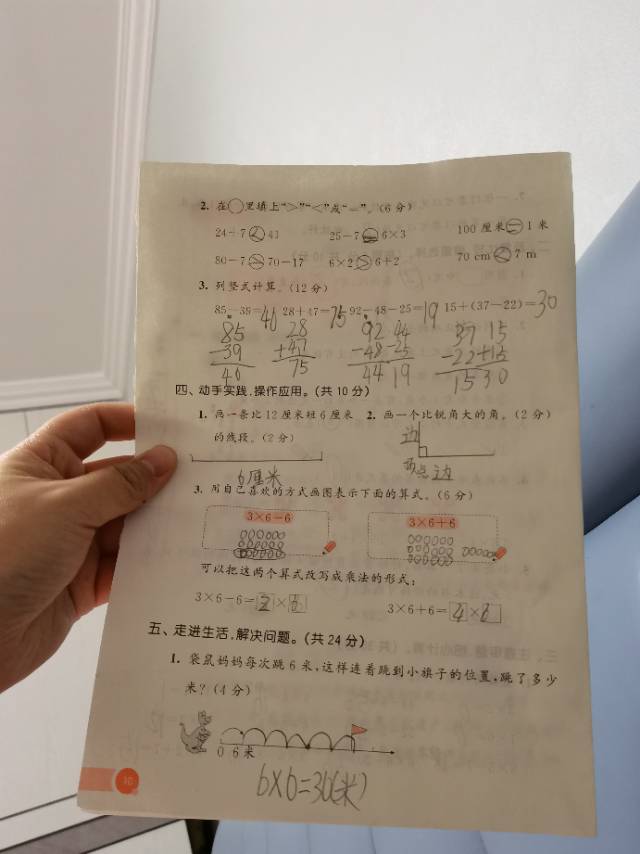 2. 在○里填上“>”“<”或“=”。(6分)
24+7<41 25-7=6×3 100厘米=1米
80-7>70-17 6×2>6+2 70cm<7m
3. 列竖式计算。(12分)
85-39=46 28+47=75 92-48-25=19 15+(37-22)=30
85 28 92 44 37 15
-39 +47 -48 -25 -22 +15
46 75 44 19 15 30
四、动手实践,操作应用。(共10分)
1. 画一条比12厘米短6厘米的线段。(2分)
6厘米
2. 画一个比锐角大的角。(2分)
边
边
3. 用自己喜欢的方式画图表示下面的算式。(6分)
3×6-6 3×6+6
可以把这两个算式改写成乘法的形式:
3×6-6=2×6 3×6+6=4×6
五、走进生活,解决问题。(共24分)
1. 袋鼠妈妈每次跳6米,这样连着跳到小旗子的位置,跳了多少
米?(4分)
0 6米
6×6=36(米)
10